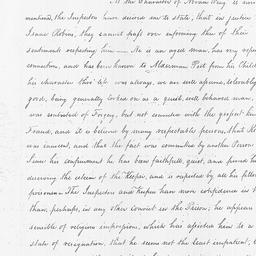 At the Character of Abraham Gray is now
mentioned, the Inspectors have desired me to state, that in justice
Isaac Robins, they cannot pass over informing thee of their
sentiments respecting him — He is an aged man, has very respe
connection, and has been known to Alderman Peet from his Child
his character thro' life was always, we are well assured, tolerably
good, being generally looked on as a quiet, well behaved man,
was convicted of Forgery, but not committed with the greatest
Fraud, and it is believed by many respectable persons, that
was innocent, and that the fact was committed by another Person
Since his confinement he has been faithfull, quiet, and proved
deserving the esteem of the Keeper, and is respected by all his fellow
prisoners — The Inspectors and Keeper have more confidence in
than, perhaps, in any other Convict in the Prison; he appears
sensible of religious impressions, which has assisted him to a
state of resignation, that he seems not the least impatient,